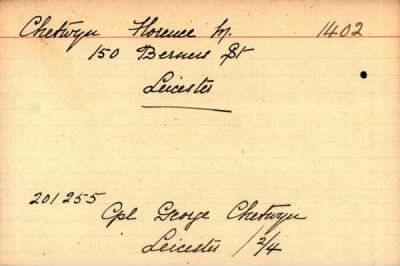 Chetwyn Florence M. 1402
150 Berners St
Leicester
201255
Cpl George Chetwyn
Leicester / 2/4